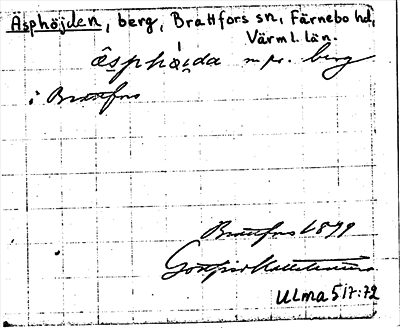 Äsphöjden, berg, Brattfors sn, Färnebo hd,
Värml. län.
äsphöida npr. berg
i Brattfors
Brattfors 1899
Gottfrid Kallstenius
ULMA 517:72